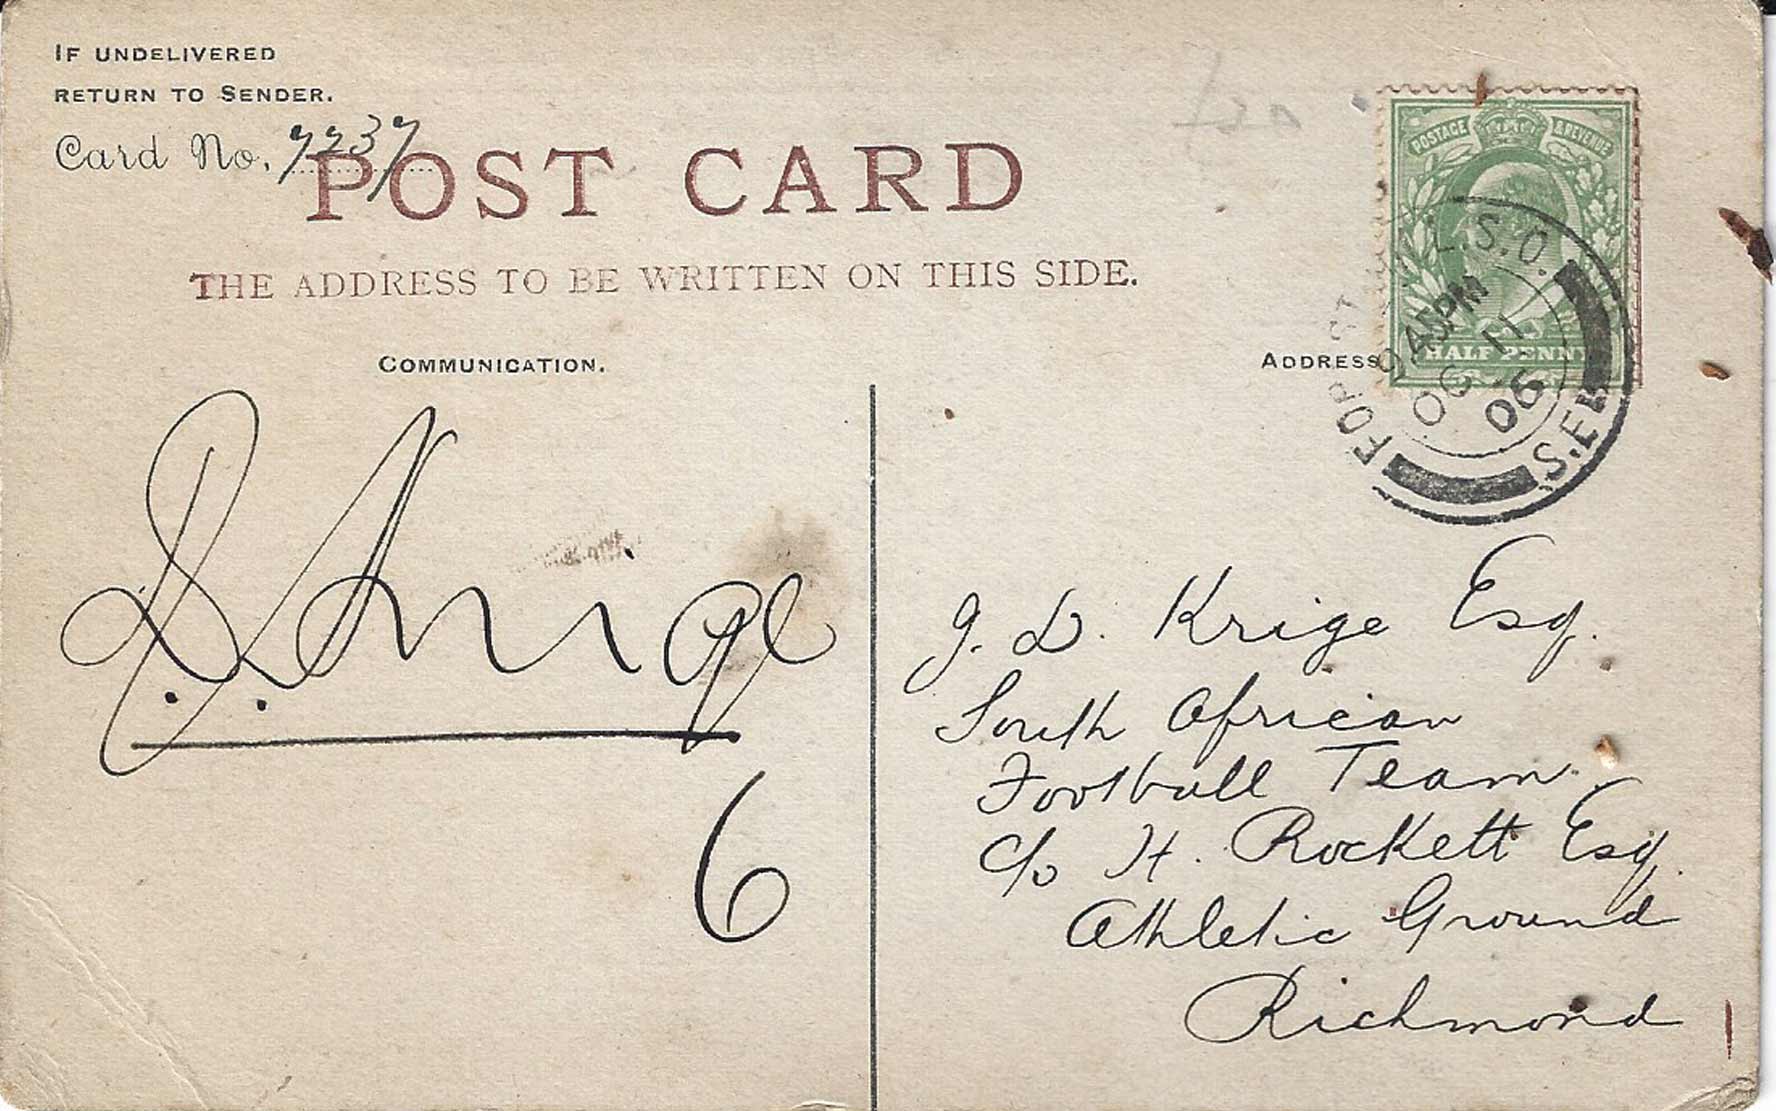 IF UNDELIVERED
RETURN TO SENDER.
Card No. 7737
POST CARD
THE ADDRESS TO BE WRITTEN ON THIS SIDE.
COMMUNICATION.
ADDRESS
POSTAGE & REVENUE
HALF PENNY
L.S.O.
45PM
OC 11
06
S.E.
J. D. Krige
6
J. D. Krige Esq.
South African
Football Team
c/o H. Rockett Esq
Athletic Ground
Richmond